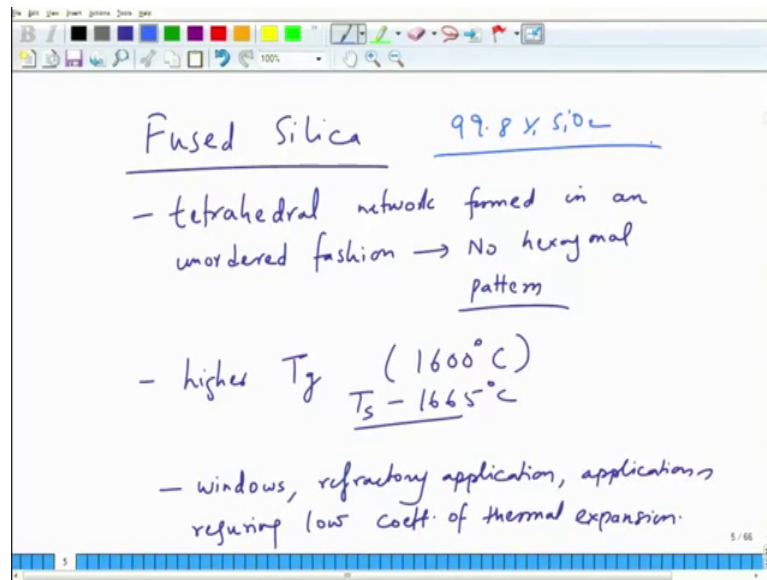 File Edit View Insert Actions Tools Help
B I
100%
Fused Silica 99.8% SiO2
- tetrahedral network formed in an
unordered fashion → No hexagonal
pattern
- higher Tg (1600°C)
Ts - 1665°C
- windows, refractory application, applications
requring low coeff. of thermal expansion.
5/66
5